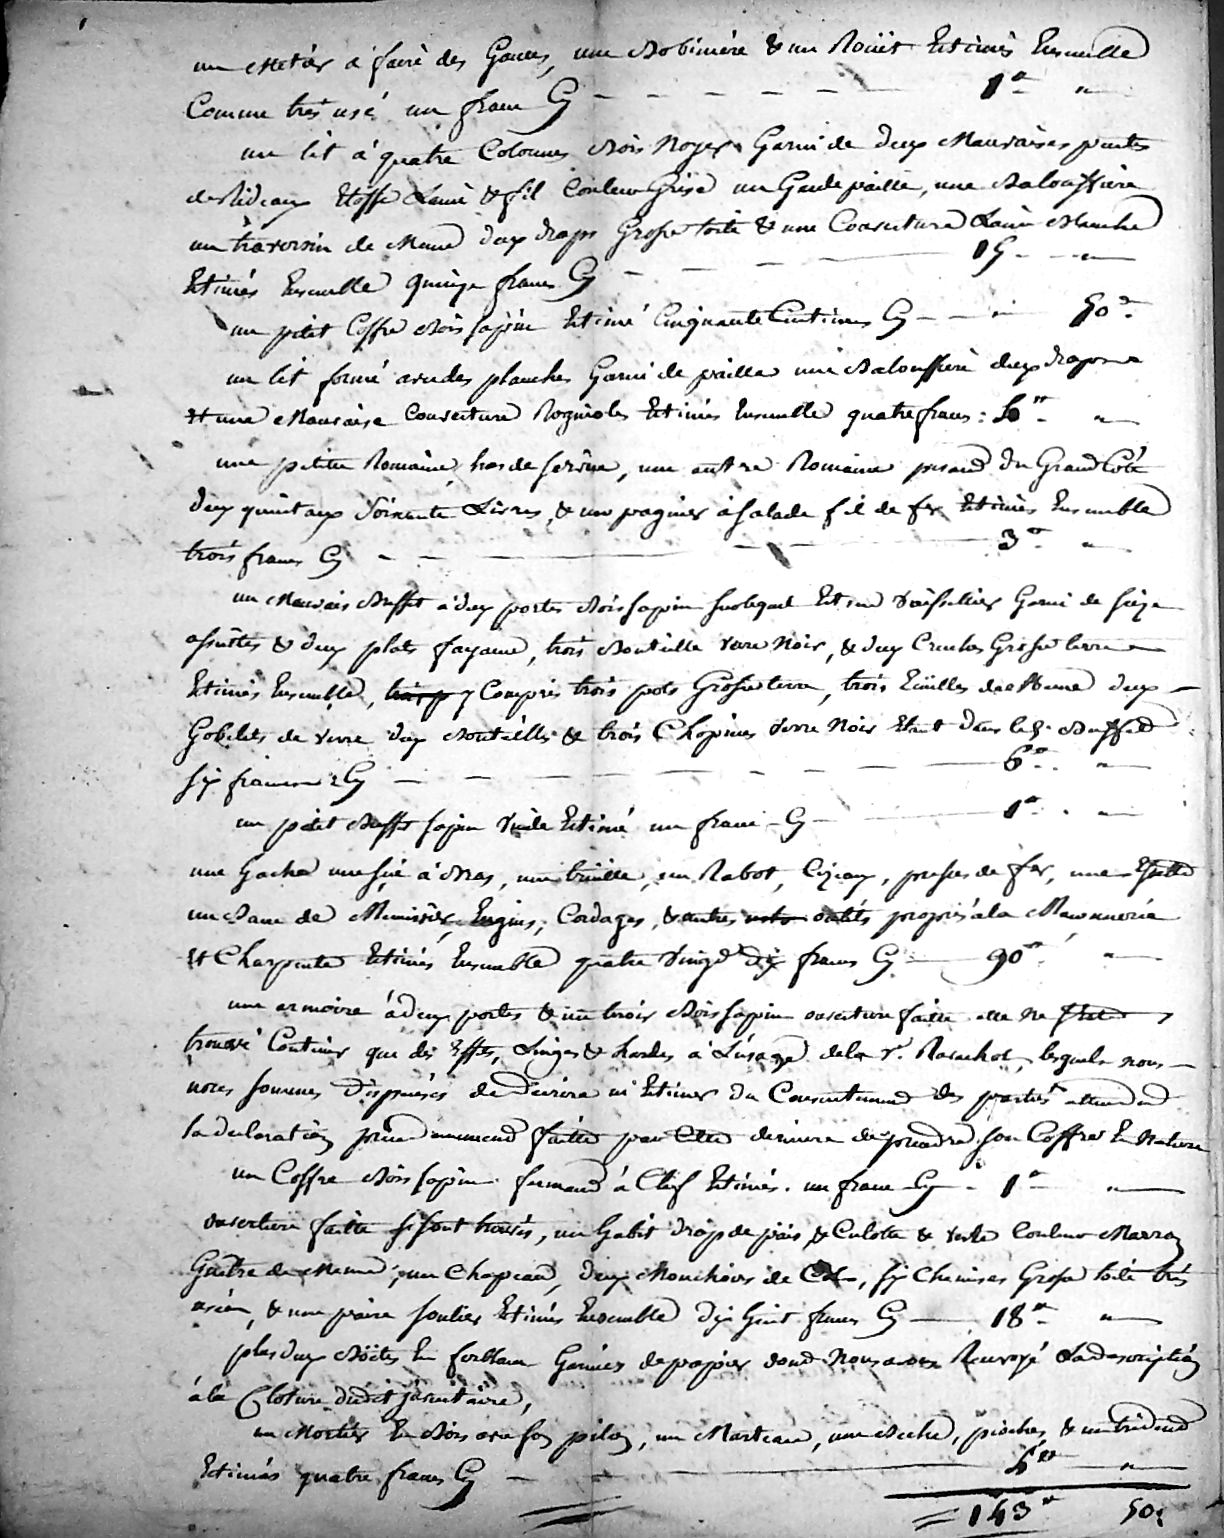 un Metier à faire des Ganses, une Bobinière & un Roüet Estimés Ensemble
Comme très usé un franc Cy — 1 "
un lit à quatre Colonnes Bois Noyer Garni de deux Mauvaises pentes
de Rideaux Etoffe Laine & fil Couleur Grise un Garde paille, une Balouffiere
un traversin de Même deux draps Grosse toile & une Couverture Laine Blanche
Estimés Ensemble quinze francs Cy — 15 "
un petit Coffre Bois sapin Estimé Cinquante Centimes Cy — " 50
un lit formé avec des planches Garni de paille une Balouffiere deux draps
et une Mauvaise Couverture Estimés Ensemble quatre francs : 4 "
une petite Romaine hors de service, une autre Romaine pesant du Grand Côté
deux quintaux Soixante Livres, & un pagnier à salade fil de fer Estimés Ensemble
trois francs Cy — 3 "
un Mauvais Buffet à deux portes Bois sapin sur lequel Est un Vaissellier Garni de seize
assiettes & deux plats fayance, trois Bouteille verre Noir, & deux Cruches Grosse terre
Estimés Ensemble, y Compris trois pots Grosse terre, trois de Même deux
Gobelets de verre deux Bouteilles & trois Chopines verre Noir Etant dans led. Buffet
six francs Cy — 6 "
un petit Buffet sapin Vuide Estimé un franc Cy — 1 "
une Gache une sie à Bras, une truelle, un Rabot, Cizeaux, presses de fer, une
un Banc de Menuisier, Engins, Cordages, & autres outils propres à la Maconnerie
et Charpente Estimés Ensemble quatre Vingt dix francs Cy — 90 "
une armoire à deux portes & un tiroir Bois sapin ouverture faite elle ne s'est
trouvé Contenir que des Effets, Linges & hardes à L'usage de la Ve. lesquels nous
nous sommes dispensés de decrire ni Estimer du Consentement des parties attendu
la declaration faitte par Cette derniere de prendre son Coffre En Nature
un Coffre Bois sapin fermant à Clef Estimés un franc Cy — 1 "
ouverture faitte s'y sont trouvés, un habit drap de païs & Culotte & veste Couleur Marron
Guêtre de Même, un Chapeau, deux Mouchoirs de Col, six Chemises Grosse toile très
usées, & une paire souliers Estimés Ensemble dix huit francs Cy — 18 "
plus deux Boites En ferblanc Garnies de papiers dont Nous avons Renvoyé La description
à la Cloture dudit Inventaire,
un Mortier En Bois avec son pilon, un Marteau, une Beche, pioches, & un trident
Estimés quatre francs Cy — 4 "
= 143 50